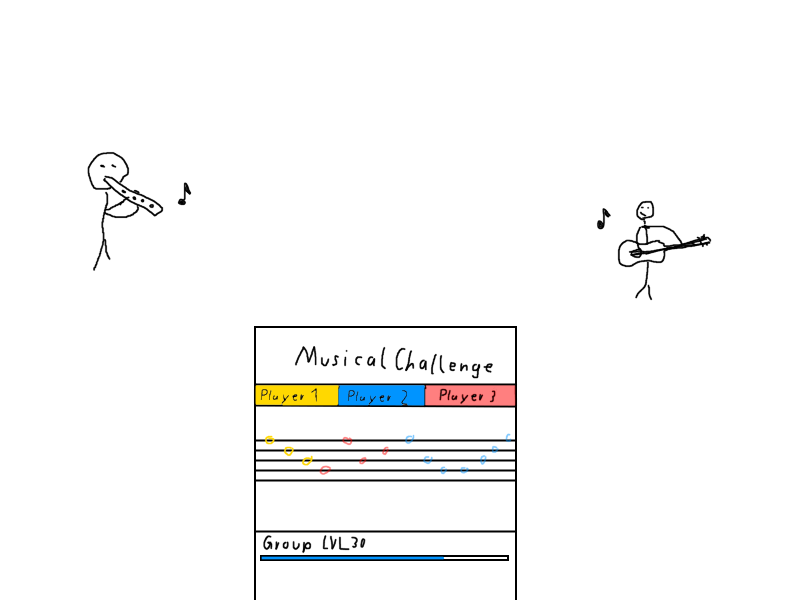 Musical Challenge
Player 1 Player 2 Player 3
Group LVL30